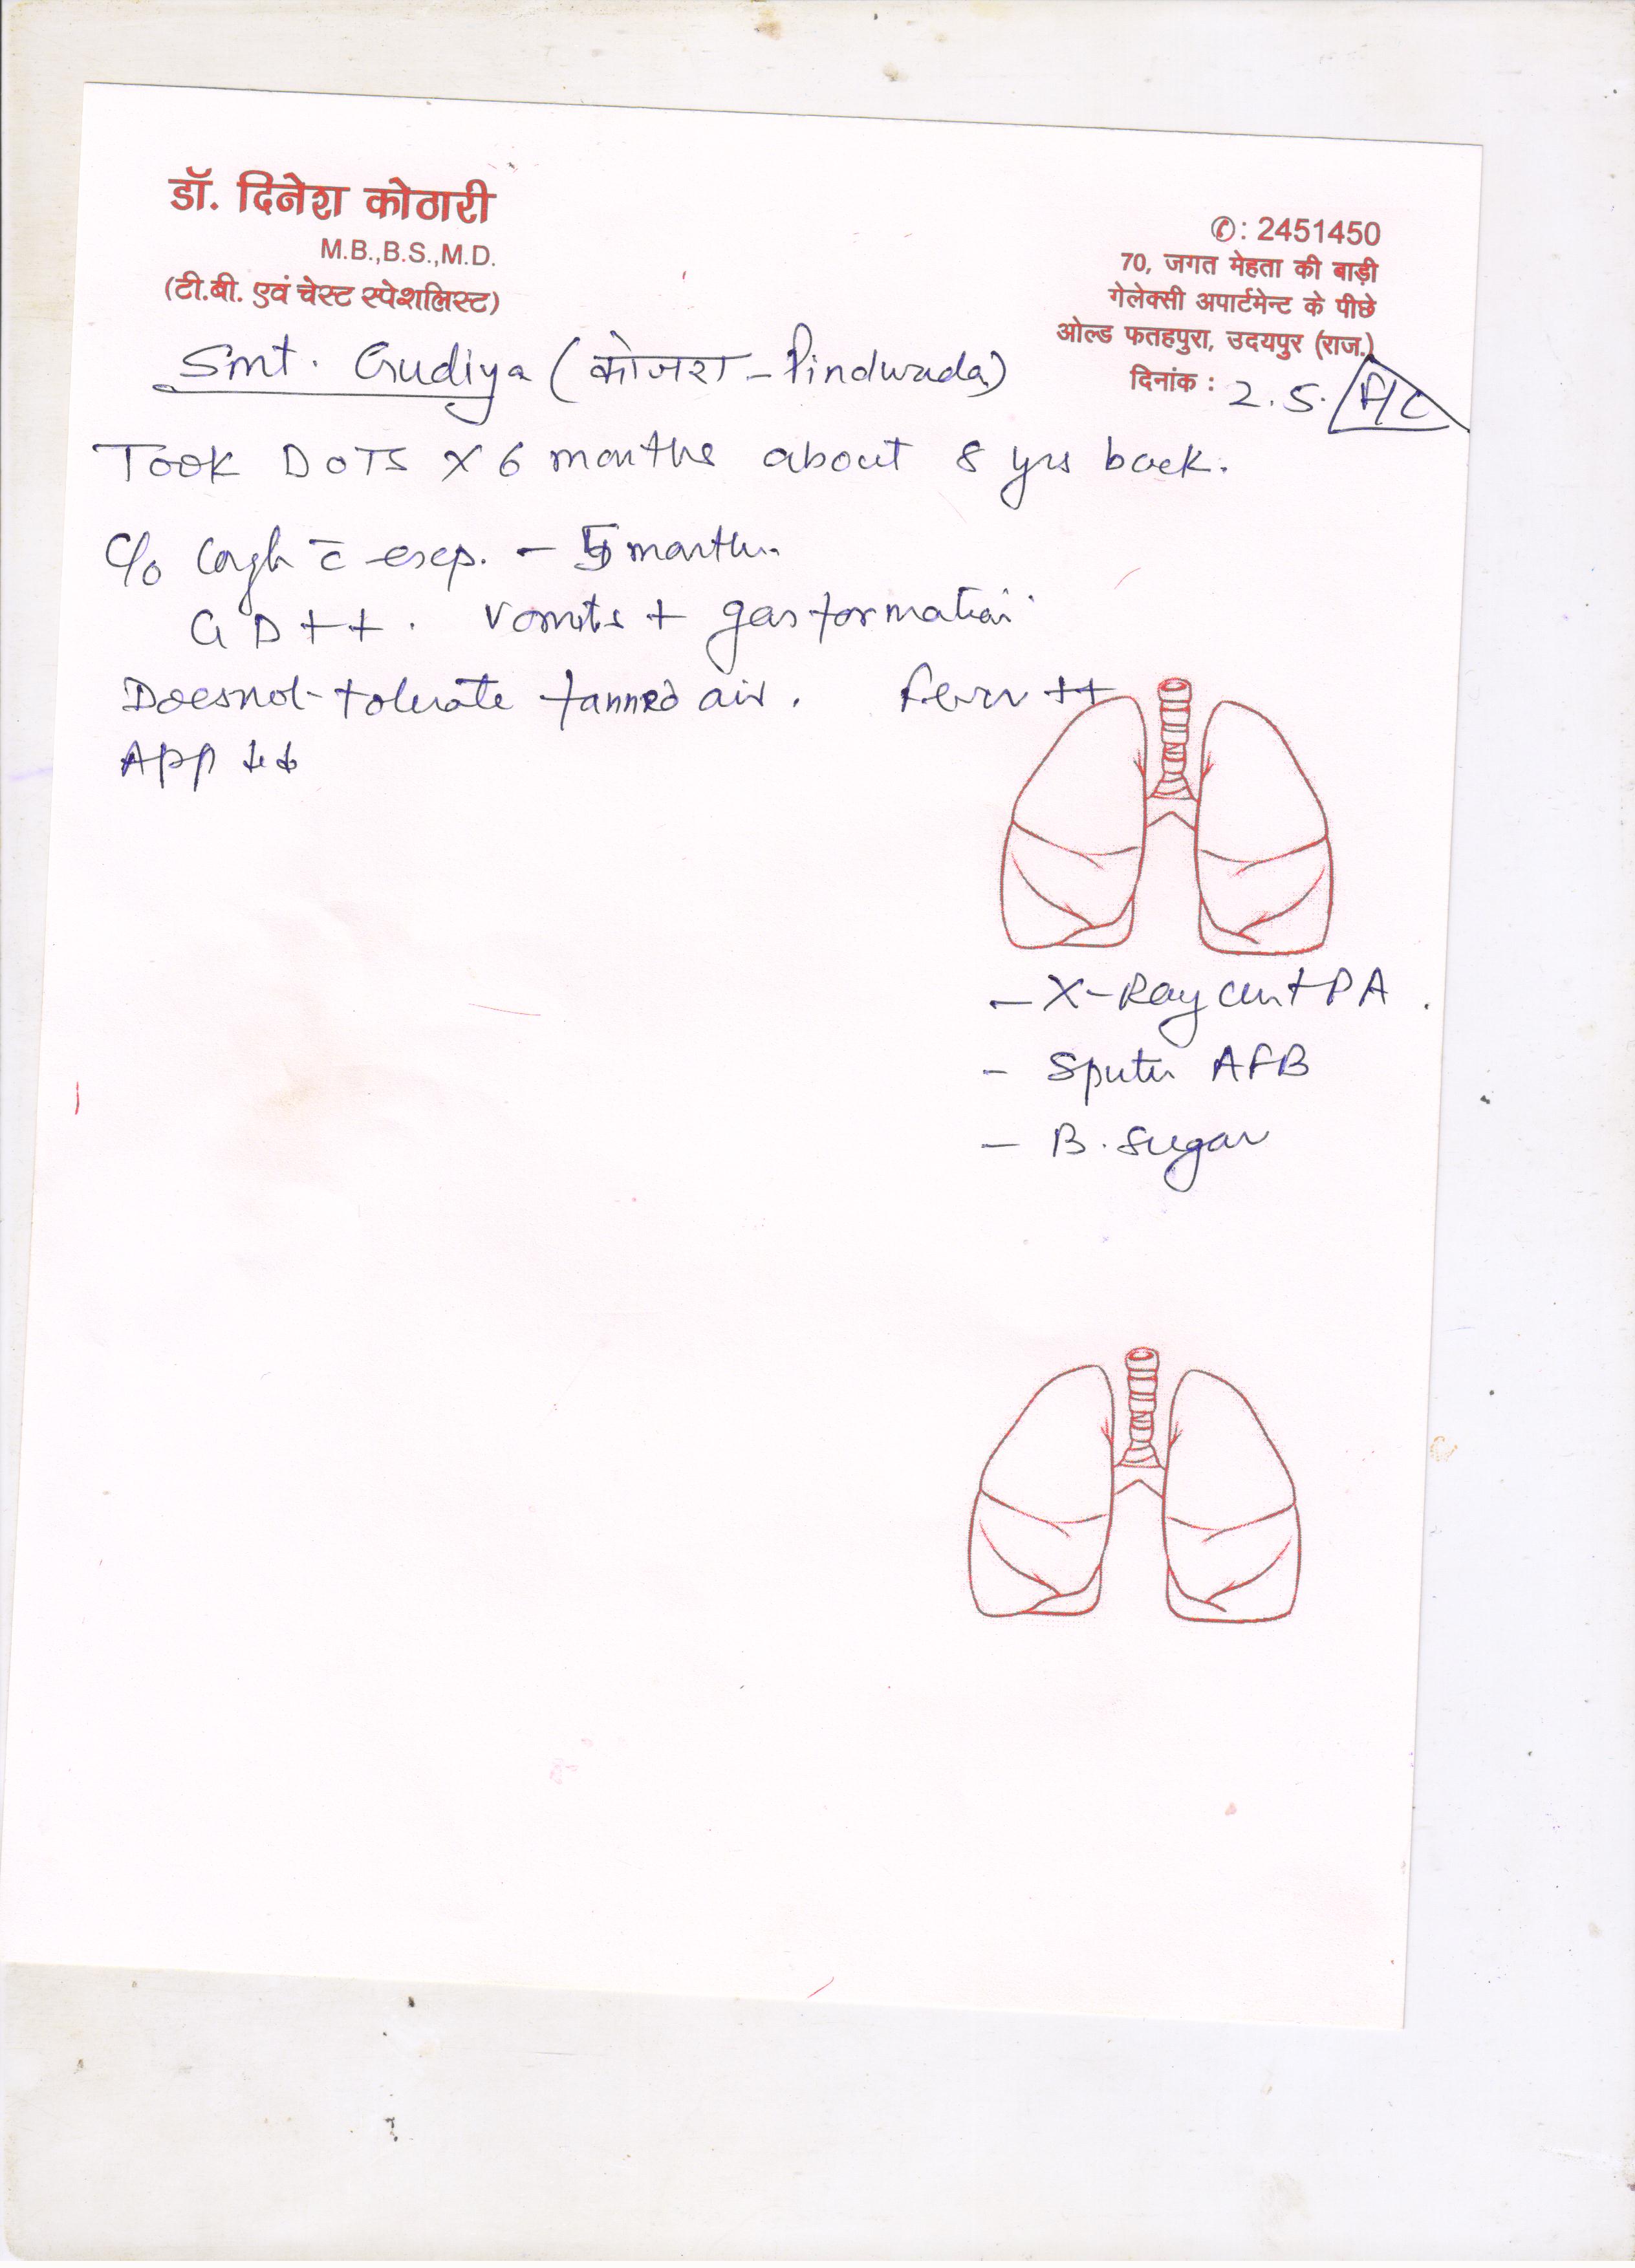 डॉ. दिनेश कोठारी
M.B.,B.S.,M.D.
(टी.बी. एवं चेस्ट स्पेशलिस्ट)
✆: 2451450
70, जगत मेहता की बाड़ी
गेलेक्सी अपार्टमेन्ट के पीछे
ओल्ड फतहपुरा, उदयपुर (राज.)
दिनांक : 2.5.
Smt. Gudiya (कोजरा - Pindwada)
Took DOTS X 6 months about 8 yrs back.
C/o Cough c̄ exp. - 5 months
GD++. Vomits + gas formation
Does not tolerate fanned air. Fever ++
App ↓↓
- X-Ray chest PA.
- Sputum AFB
- B. Sugar